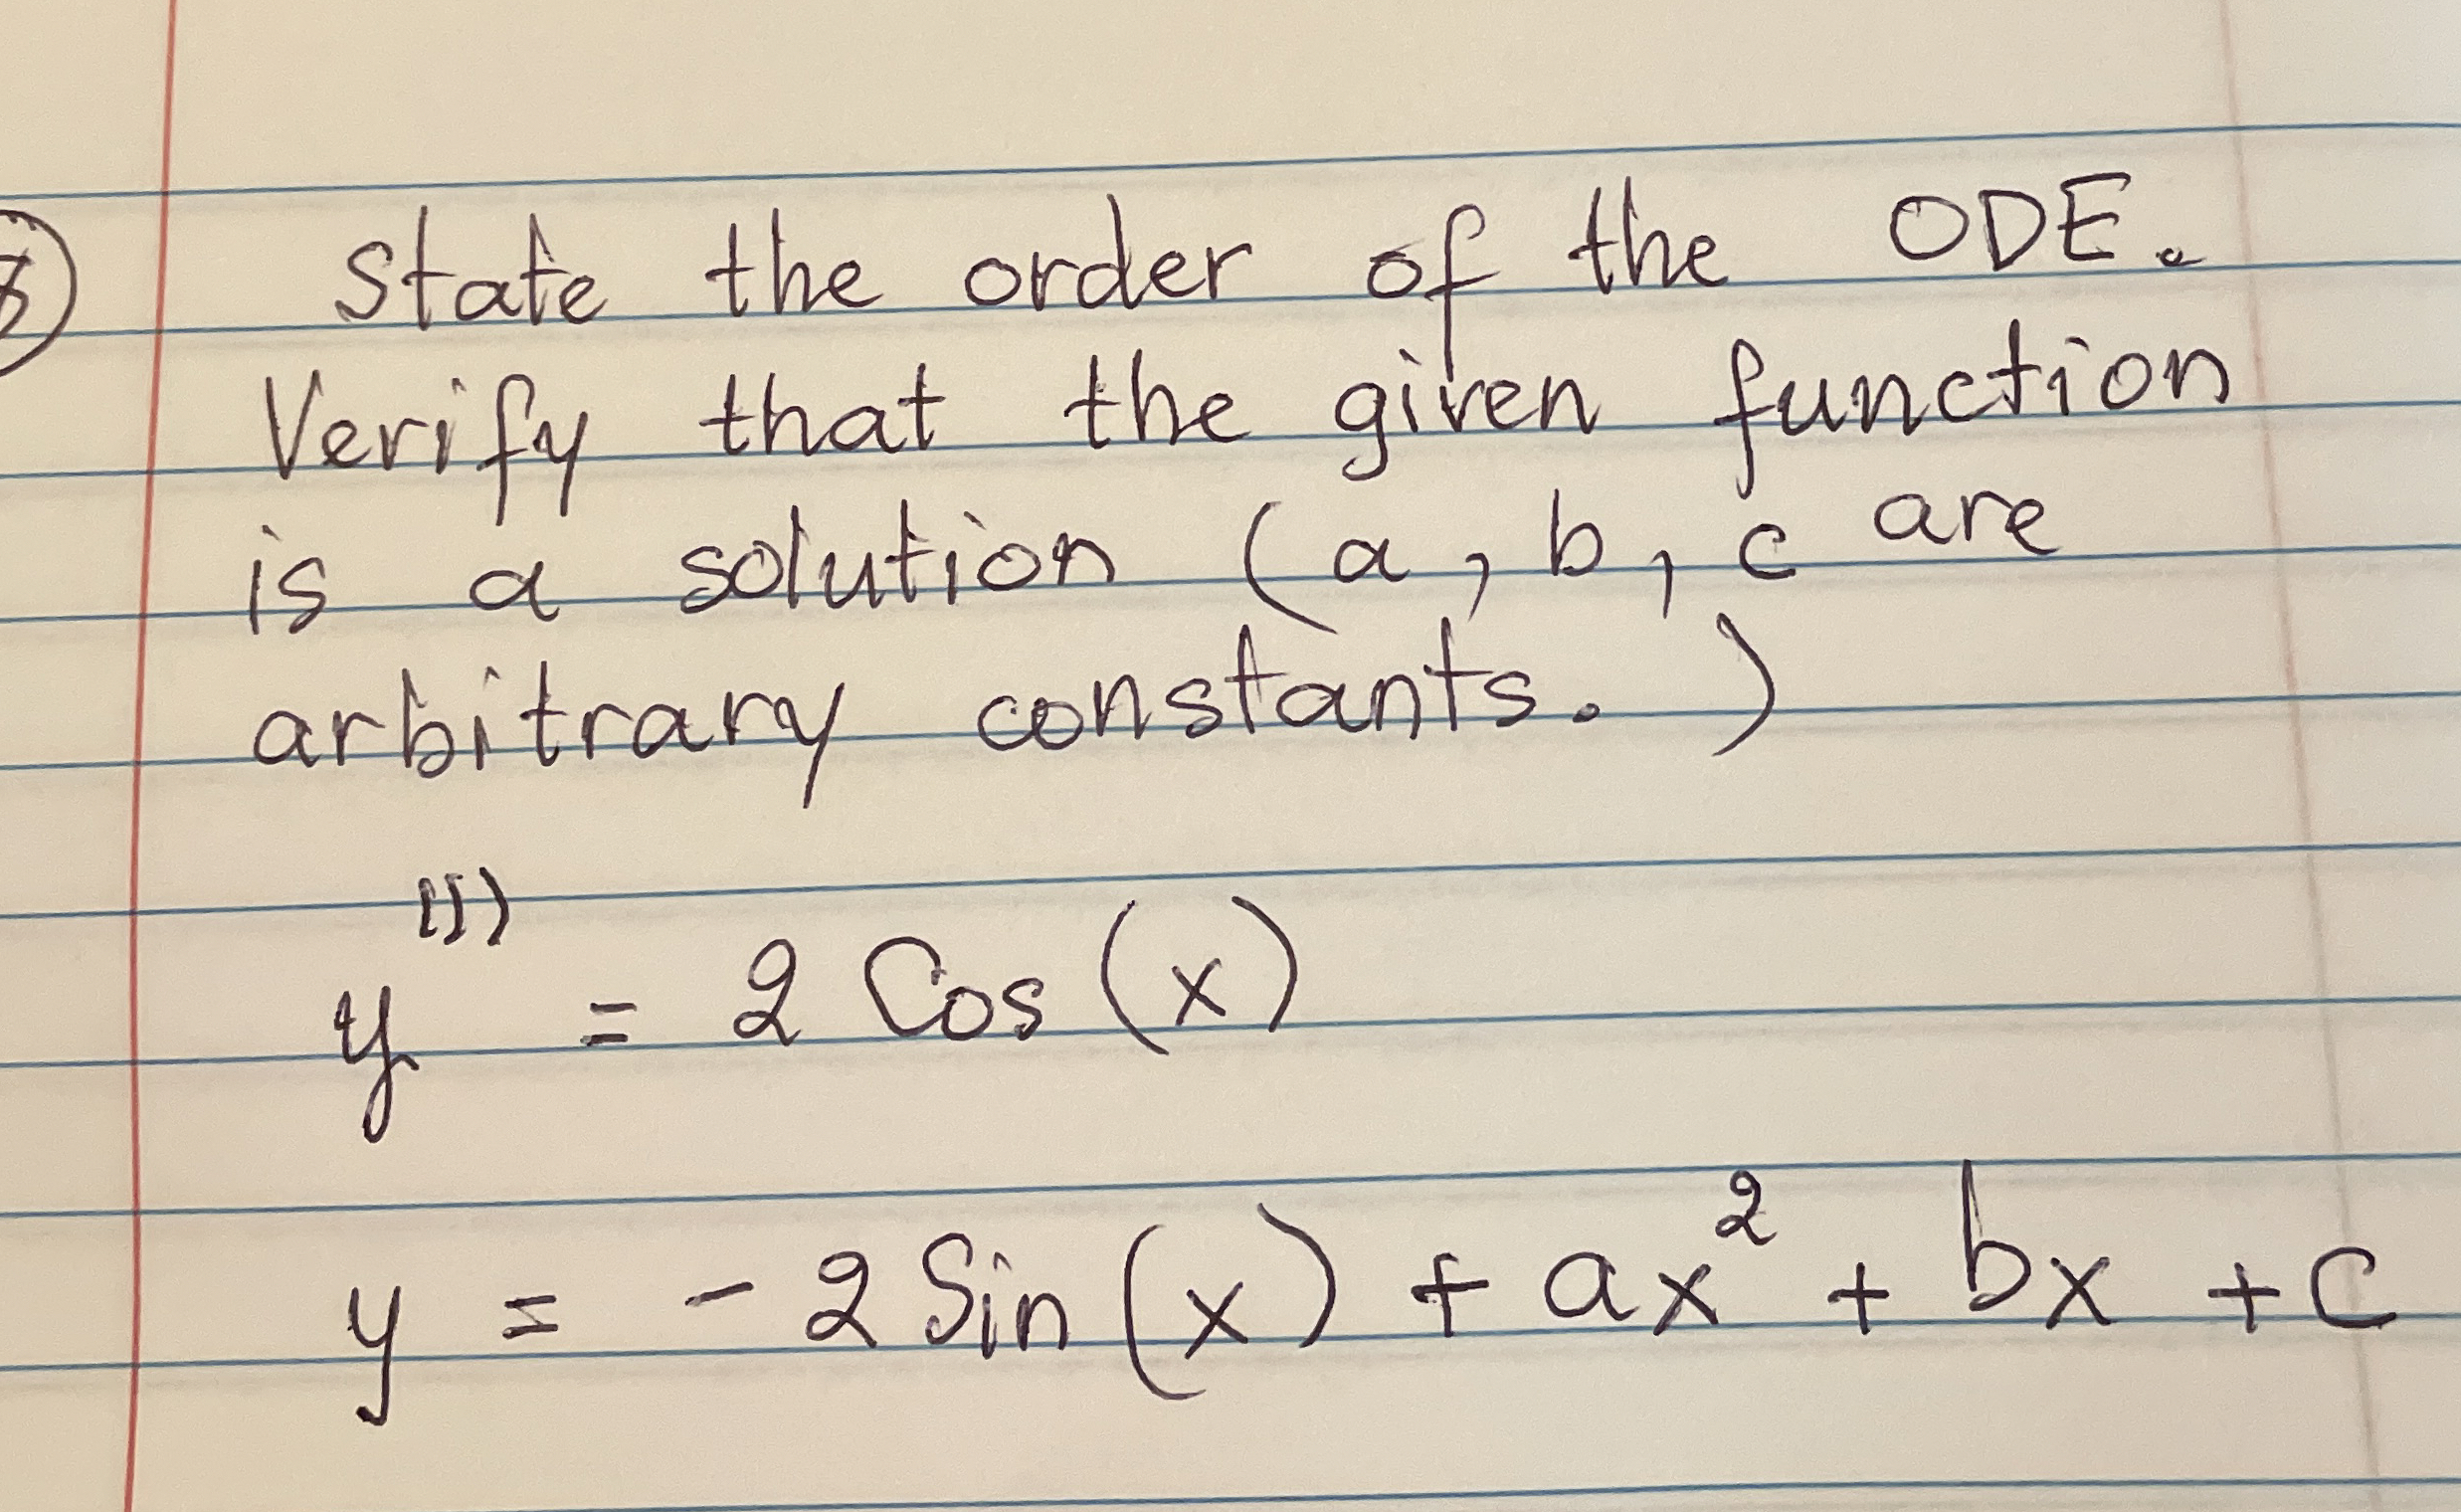 State the order of the ODE.
Verify that the given function
is a solution (a, b, c are
arbitrary constants.)
y''' = 2 Cos (x)
y = - 2 Sin (x) + ax² + bx + c